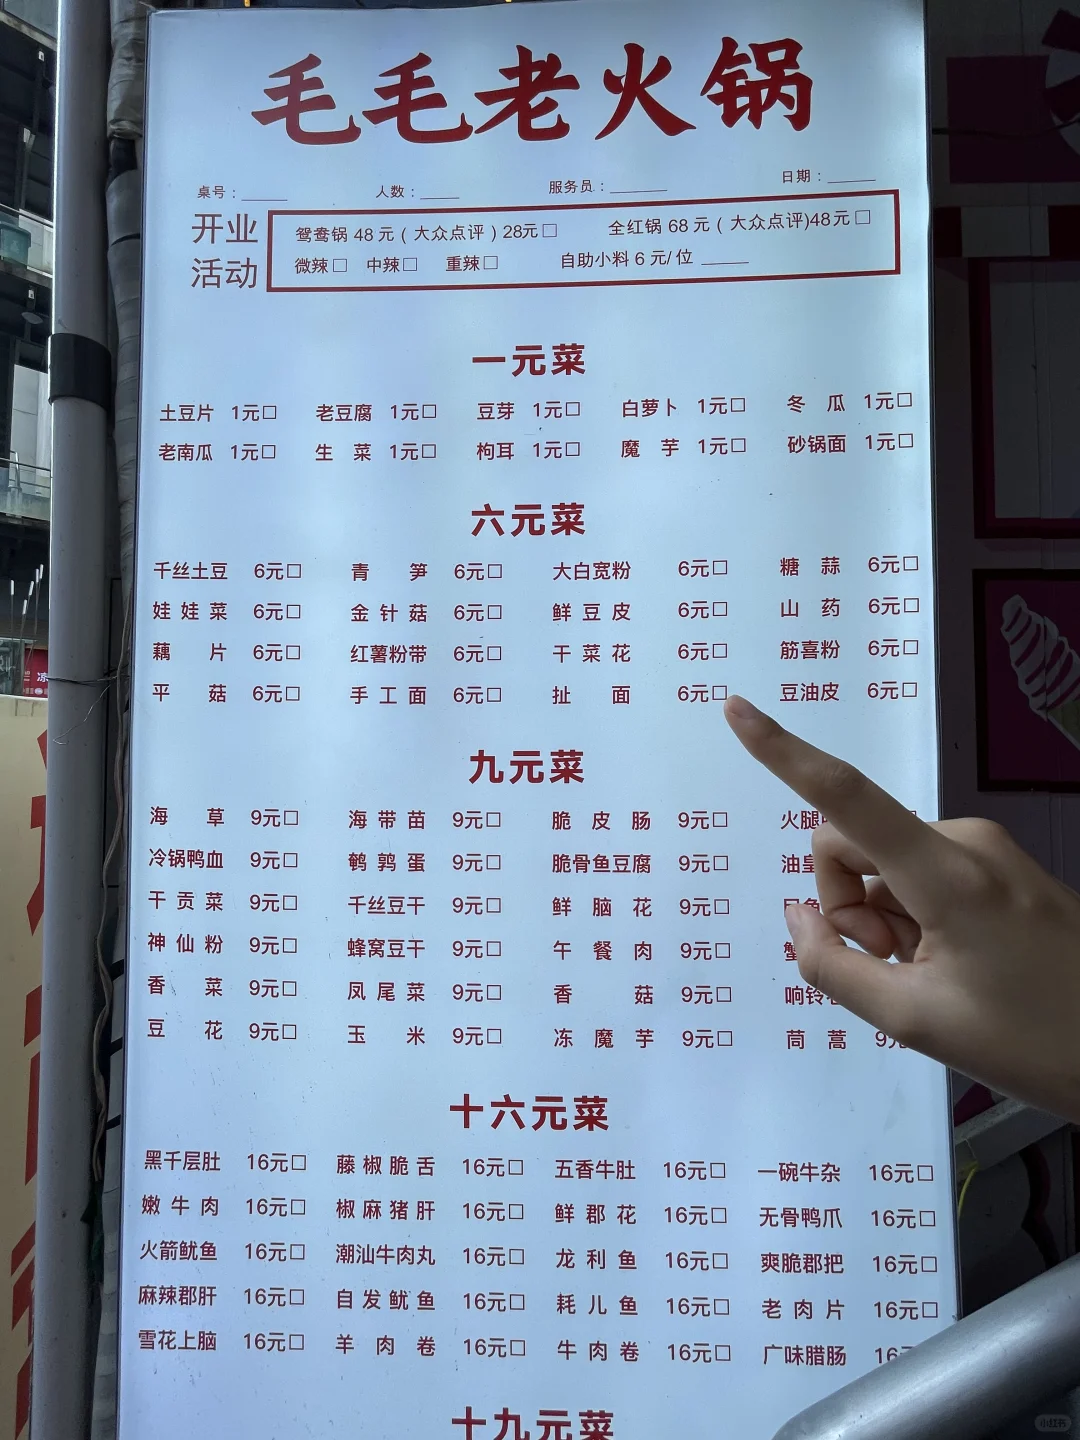 毛毛老火锅
桌号：_____ 人数：____ 服务员：______ 日期：_____
开业活动
鸳鸯锅 48 元 ( 大众点评 ) 28元□ 全红锅 68 元 ( 大众点评)48元□
微辣□ 中辣□ 重辣□ 自助小料 6 元/ 位 _____
一元菜
土豆片 1元□ 老豆腐 1元□ 豆芽 1元□ 白萝卜 1元□ 冬瓜 1元□
老南瓜 1元□ 生菜 1元□ 枸耳 1元□ 魔芋 1元□ 砂锅面 1元□
六元菜
千丝土豆 6元□ 青笋 6元□ 大白宽粉 6元□ 糖蒜 6元□
娃娃菜 6元□ 金针菇 6元□ 鲜豆皮 6元□ 山药 6元□
藕片 6元□ 红薯粉带 6元□ 干菜花 6元□ 筋喜粉 6元□
平菇 6元□ 手工面 6元□ 扯面 6元□ 豆油皮 6元□
九元菜
海草 9元□ 海带苗 9元□ 脆皮肠 9元□ 火腿
冷锅鸭血 9元□ 鹌鹑蛋 9元□ 脆骨鱼豆腐 9元□ 油皇
干贡菜 9元□ 千丝豆干 9元□ 鲜脑花 9元□
神仙粉 9元□ 蜂窝豆干 9元□ 午餐肉 9元□ 蟹
香菜 9元□ 凤尾菜 9元□ 香菇 9元□ 响铃
豆花 9元□ 玉米 9元□ 冻魔芋 9元□ 茼蒿 9元
十六元菜
黑千层肚 16元□ 藤椒脆舌 16元□ 五香牛肚 16元□ 一碗牛杂 16元□
嫩牛肉 16元□ 椒麻猪肝 16元□ 鲜郡花 16元□ 无骨鸭爪 16元□
火箭鱿鱼 16元□ 潮汕牛肉丸 16元□ 龙利鱼 16元□ 爽脆郡把 16元□
麻辣郡肝 16元□ 自发鱿鱼 16元□ 耗儿鱼 16元□ 老肉片 16元□
雪花上脑 16元□ 羊肉卷 16元□ 牛肉卷 16元□ 广味腊肠 16
十九元菜
小红书